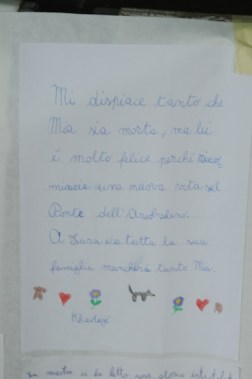 Mi dispiace tanto che
Mia sia morta, ma lei
è molto felice perché rico-
mincia una nuova vita sul
Ponte dell'Arcobaleno.
A Sara e a tutta la sua
famiglia mancherà tanto Mia.